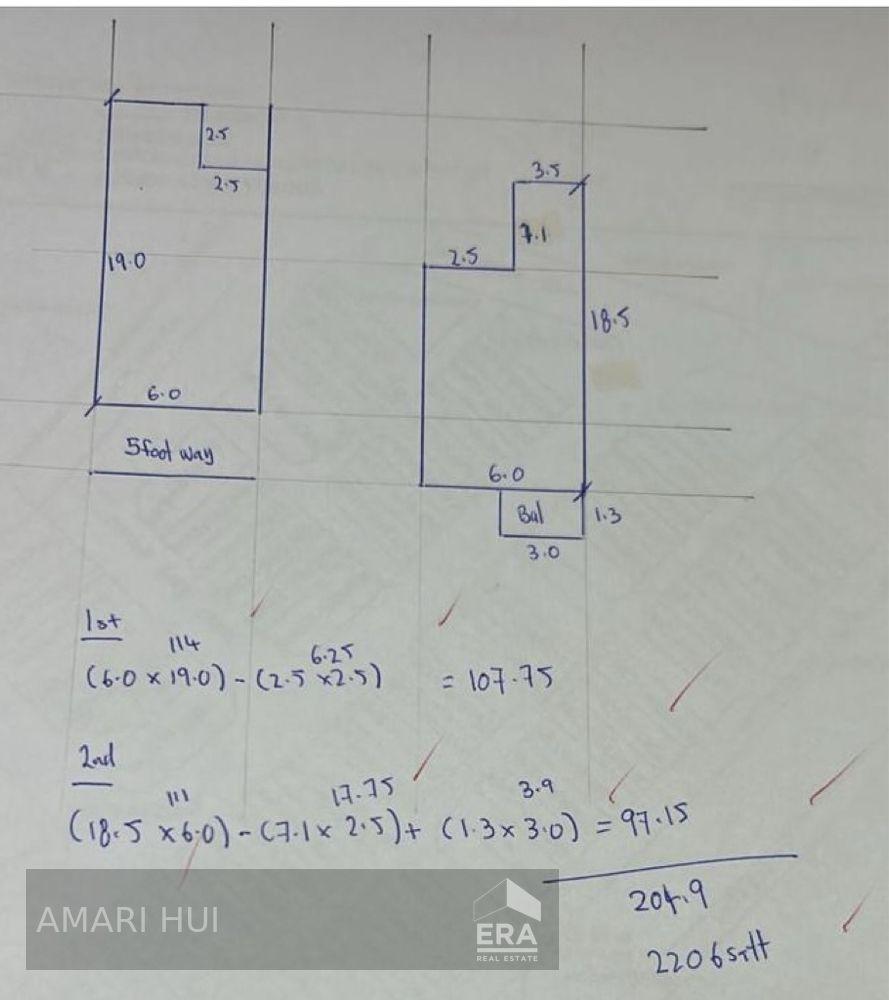 2.5
2.5
19.0
6.0
5 foot way
3.5
7.1
2.5
18.5
6.0
Bal
1.3
3.0
1st
114
6.25
(6.0 x 19.0) - (2.5 x 2.5) = 107.75
2nd
111
17.75
3.9
(18.5 x 6.0) - (7.1 x 2.5) + (1.3 x 3.0) = 97.15
204.9
2206 sqft
AMARI HUI
ERA
REAL ESTATE